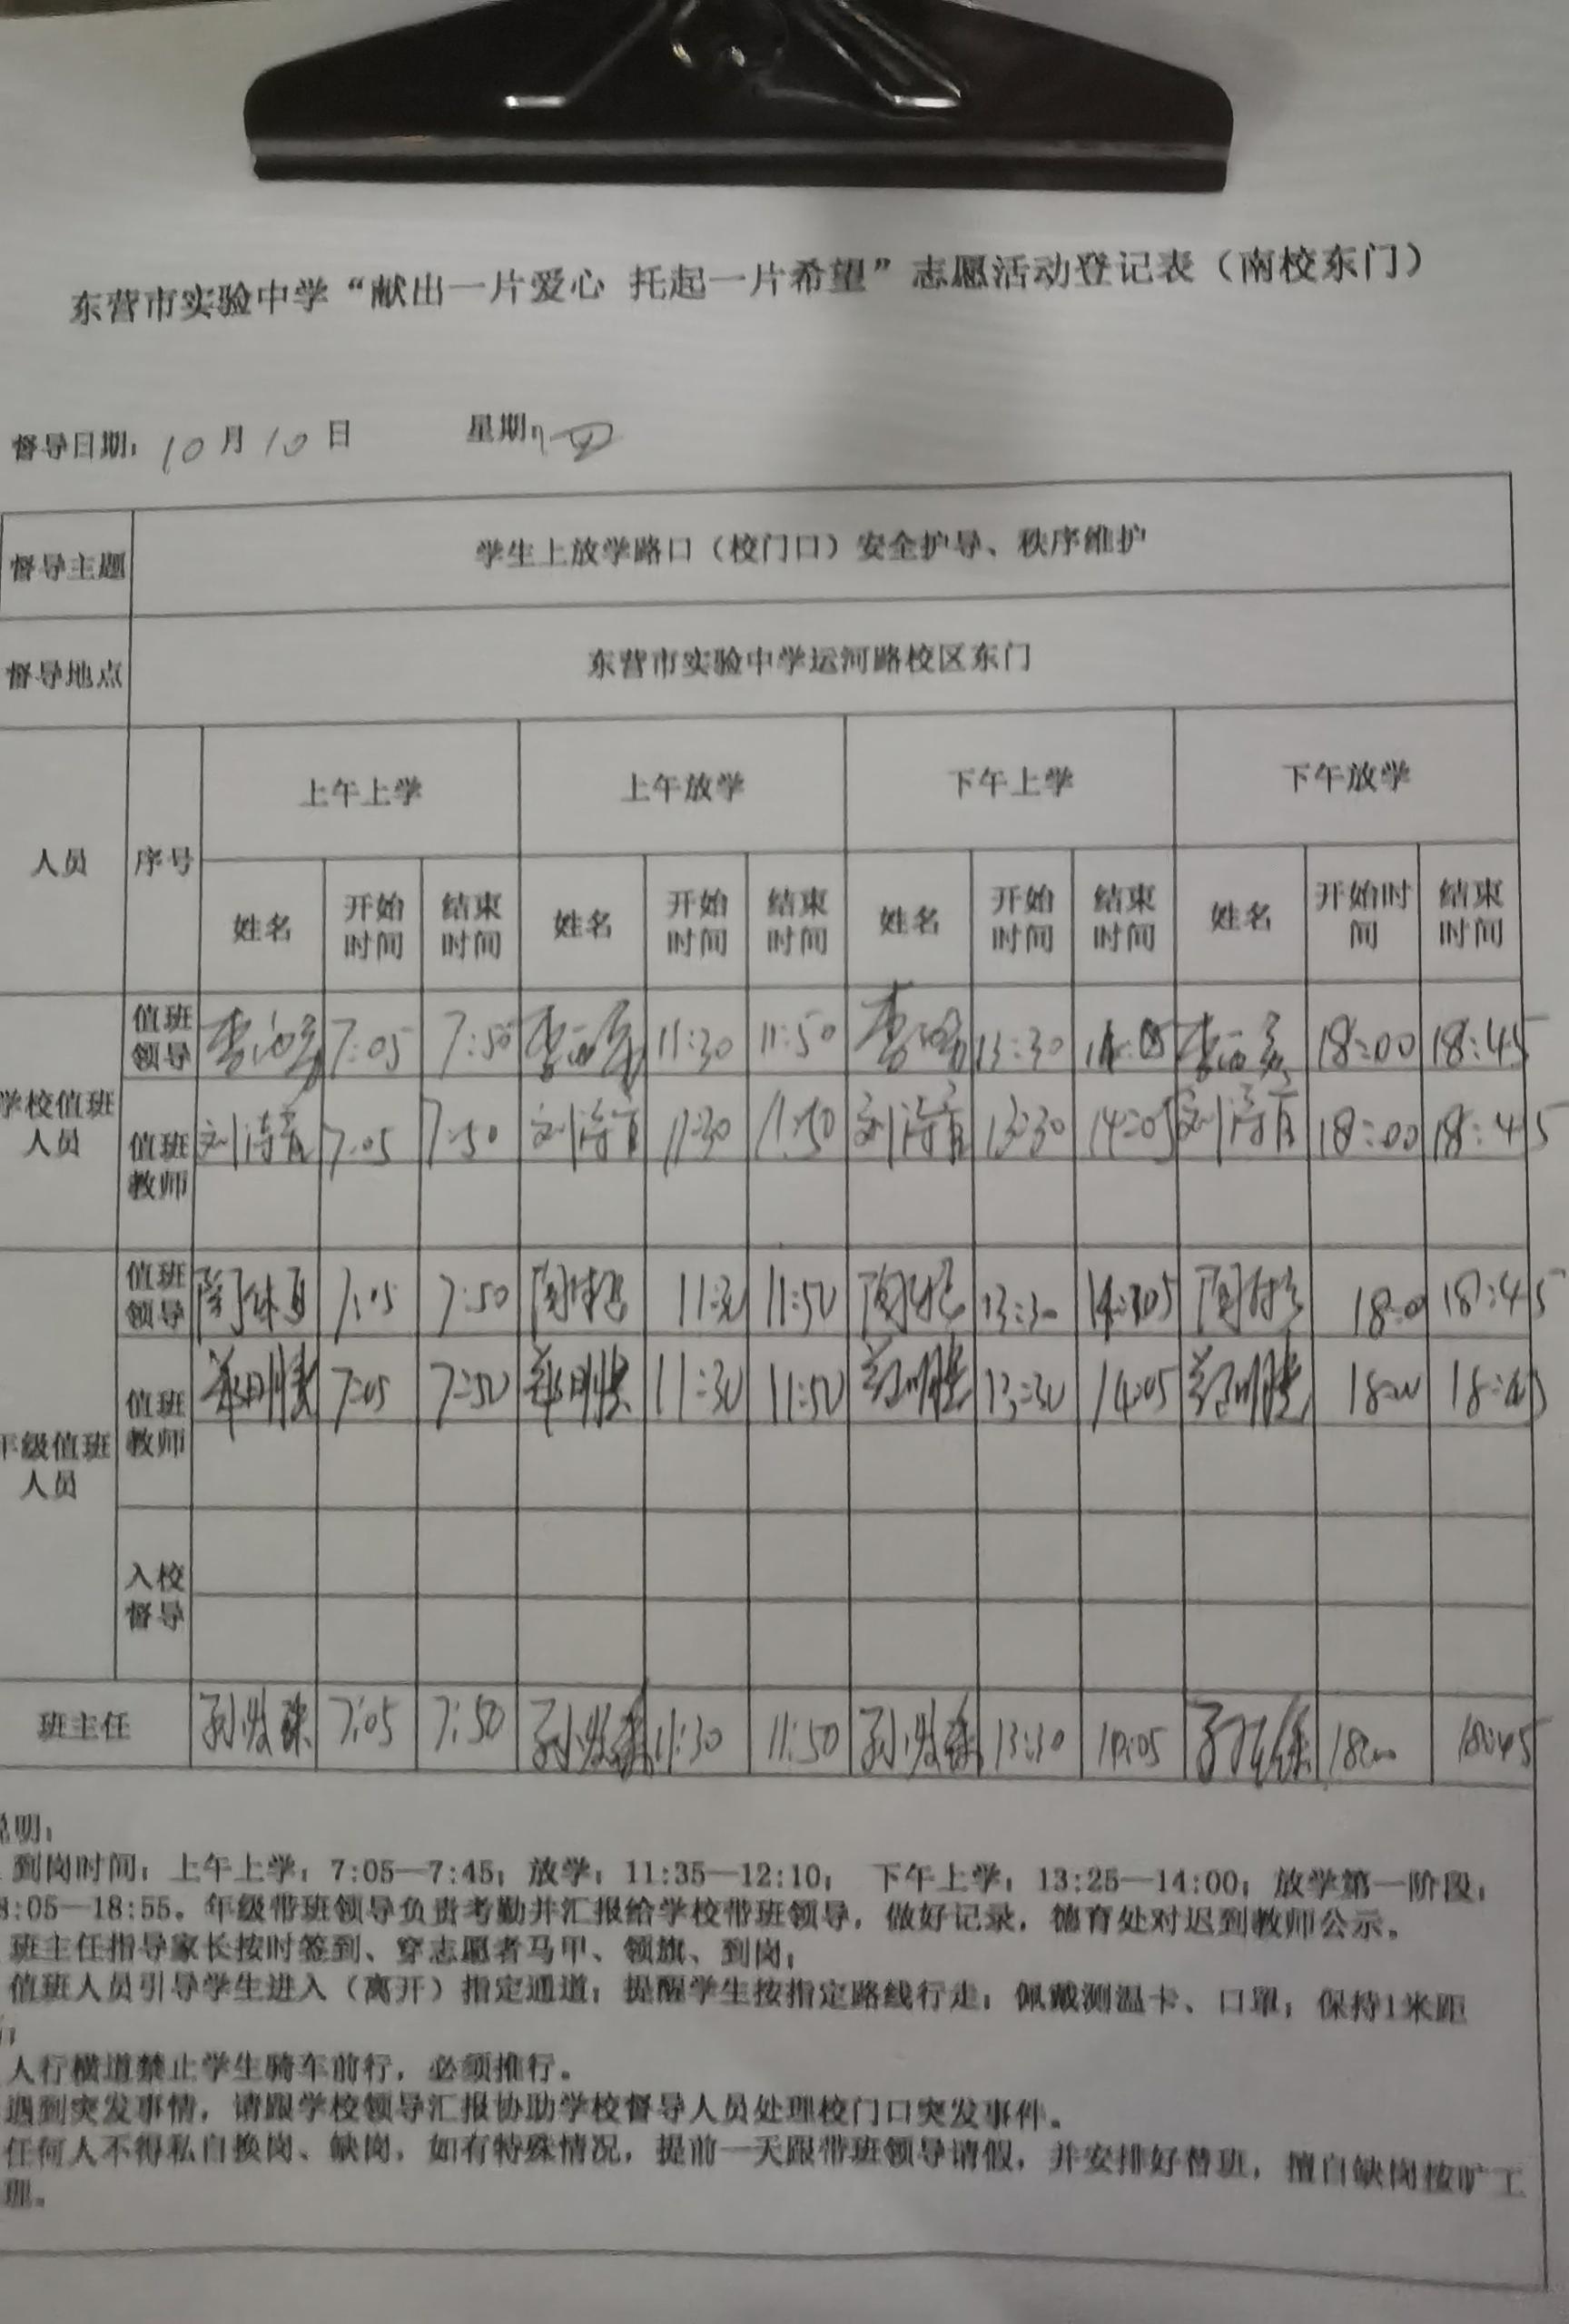 东营市实验中学“献出一片爱心 托起一片希望”志愿活动登记表（南校东门）
督导日期：10月10日 星期：四
督导主题 学生上放学路口（校门口）安全护导、秩序维护
督导地点 东营市实验中学运河路校区东门
人员 序号 上午上学 上午放学 下午上学 下午放学
姓名 开始时间 结束时间 姓名 开始时间 结束时间 姓名 开始时间 结束时间 姓名 开始时间 结束时间
学校值班人员 值班领导 7:05 7:50 11:30 11:50 13:30 18:00 18:45
值班教师 7:05 7:50 11:30 11:50 13:30 14:05 18:00 18:45
年级值班人员 值班领导 7:05 7:50 11:30 11:50 13:30 18:45
值班教师 7:05 7:50 11:30 11:50 13:30 14:05
入校督导
班主任 7:05 7:50 11:30 11:50 13:30 18:45
说明：
到岗时间：上午上学：7:05—7:45；放学：11:35—12:10； 下午上学：13:25—14:00；放学第一阶段：
8:05—18:55。年级带班领导负责考勤并汇报给学校带班领导，做好记录，德育处对迟到教师公示。
班主任指导家长按时签到、穿志愿者马甲、领旗、到岗；
值班人员引导学生进入（离开）指定通道；提醒学生按指定路线行走；佩戴测温卡、口罩；保持1米距
人行横道禁止学生骑车前行，必须推行。
遇到突发事情，请跟学校领导汇报协助学校督导人员处理校门口突发事件。
任何人不得私自换岗、缺岗，如有特殊情况，提前一天跟带班领导请假，并安排好替班，擅自缺岗按旷工
理。